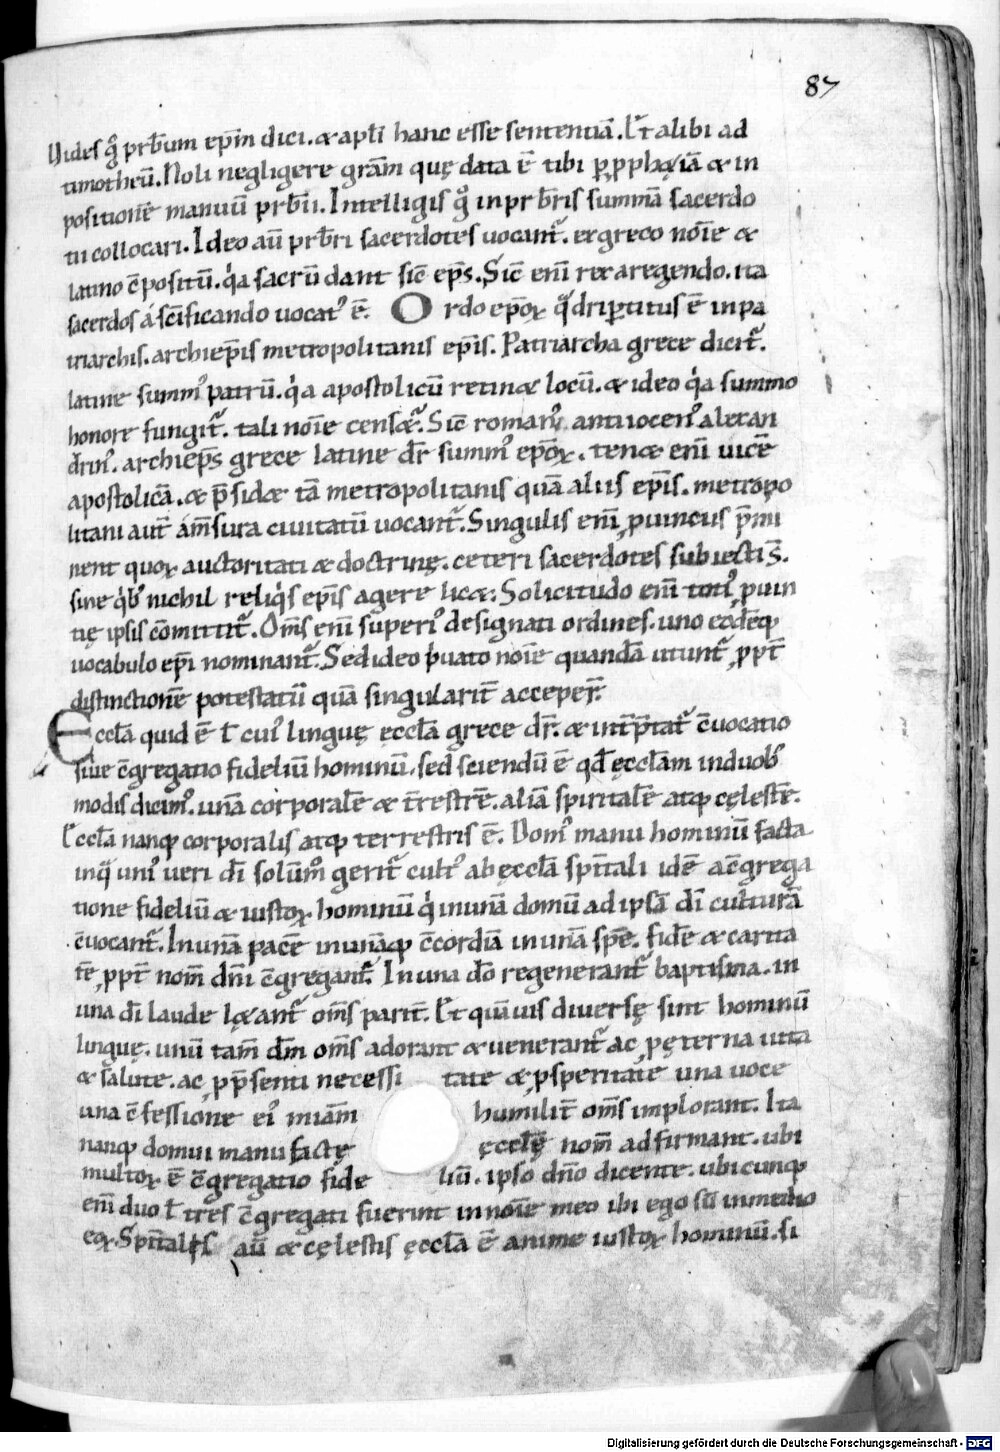 87
Uides g̊ prb̄um ep̄m dici. & apłi hanc esse sententiā. Et alibi ad
timotheū. Noli negligere grām quę data ē tibi p̱ pphętiā & in
positionē manuū prb̄ii. Intelligis g̊ in prb̄ris summā sacerdo
tii collocari. Ideo aū prb̄ri sacerdotes uocant̄. ex greco nōie &
latino c̄positū. qͥa sacrū dant sic̄ ep̄s. Sic̄ enī rex a regendo. ita
sacerdos á sc̄ificando uocat᷑ ē. Ordo ep̄oꝝ qͣdriꝑtitus ē in pa
triarchis. archiep̄is metropolitanis ep̄is. Patriarcha grece dicit᷑.
latine summ᷒ patrū. qͥa apostolicū retin& locū. & ideo qͥa summo
honore fungit᷑. tali nōie cens&᷑. Sic̄ roman᷒ antiocen᷒ alexan
drin᷒. archiep̄s grece latine dr̄ summ᷒ ep̄oꝝ. ten& enī uicē
apostolicā. & p̄sid& tā metropolitanis quā aliis ep̄is. metropo
litani aut̄ ám̄sura ciuitatū uocant᷑. Singulis enī ꝓuinciis p̄mi
nent quoꝝ auctoritati & doctrinę. ceteri sacerdotes subiecti s̄.
sine qͥb᷒ nichil reliqͥs ep̄is agere lic&: Solicitudo enī toti᷒ ꝓuin
tię ipsis cōmittit᷑. Om̄s enī superi᷒ designati ordines. uno eodēq;
uocabulo ep̄i nominant᷑. Sed ideo pͥuato nōie quandā utunt᷑ ꝓpt̄
distinctionē potestatū quā singularit̄ acceper̄.
Eccła quid ē ł cui᷒ linguę ęccła grece dr̄. & int̄p̄tat᷑ c̄uocatio
siue c̄gregatio fideliū hominū. sed sciendū ē qd̄ ęccłam in duob᷒
modis dicim᷒. unā corporalē & t̄restrē. aliā spiritalē atq; cęlestē.
Eccła nanq; corporalis atq; terrestris ē. Dom᷒ manu hominū facta
in qͣ uni᷒ ueri dī solūm̊ gerit᷑ cult᷒ ab ęccła spīitali idē a c̄grega
tione fideliū & iustoꝝ hominū qͥ in unā domū ad ipsā dī culturā
c̄uocant᷑. In unā pacē in unāq; c̄cordiā in unā spē. fidē & carita
tē ꝓpt̄ nom̄ dn̄i c̄gregant᷑. In una dō regenerant᷑ baptisma. in
una dī laude l&ant᷑ om̄s parit̄. Et quāuis diuersę sint hominū
linguę. unū tam̄ dm̄ om̄s adorant & uenerant᷑ ac ꝓ ęterna uita
& salute. ac ꝓ p̄senti necessi tate & ꝓsperitate una uoce
una c̄fessione ei᷒ miām humilit̄ om̄s implorant. Ita
nanq; domui manu factę ęccłę nom̄ adfirmant. ubi
multoꝝ ē c̄gregatio fide liū. ipso dn̄o dicente. ubicunq;
enī duo ł tres c̄gregati fuerint in nōie meo ibi ego sū in medio
eoꝝ. Spīitalis aū & cęlestis ęccła ē anime iustoꝝ hominū. si
Digitalisierung gefördert durch die Deutsche Forschungsgemeinschaft - DFG